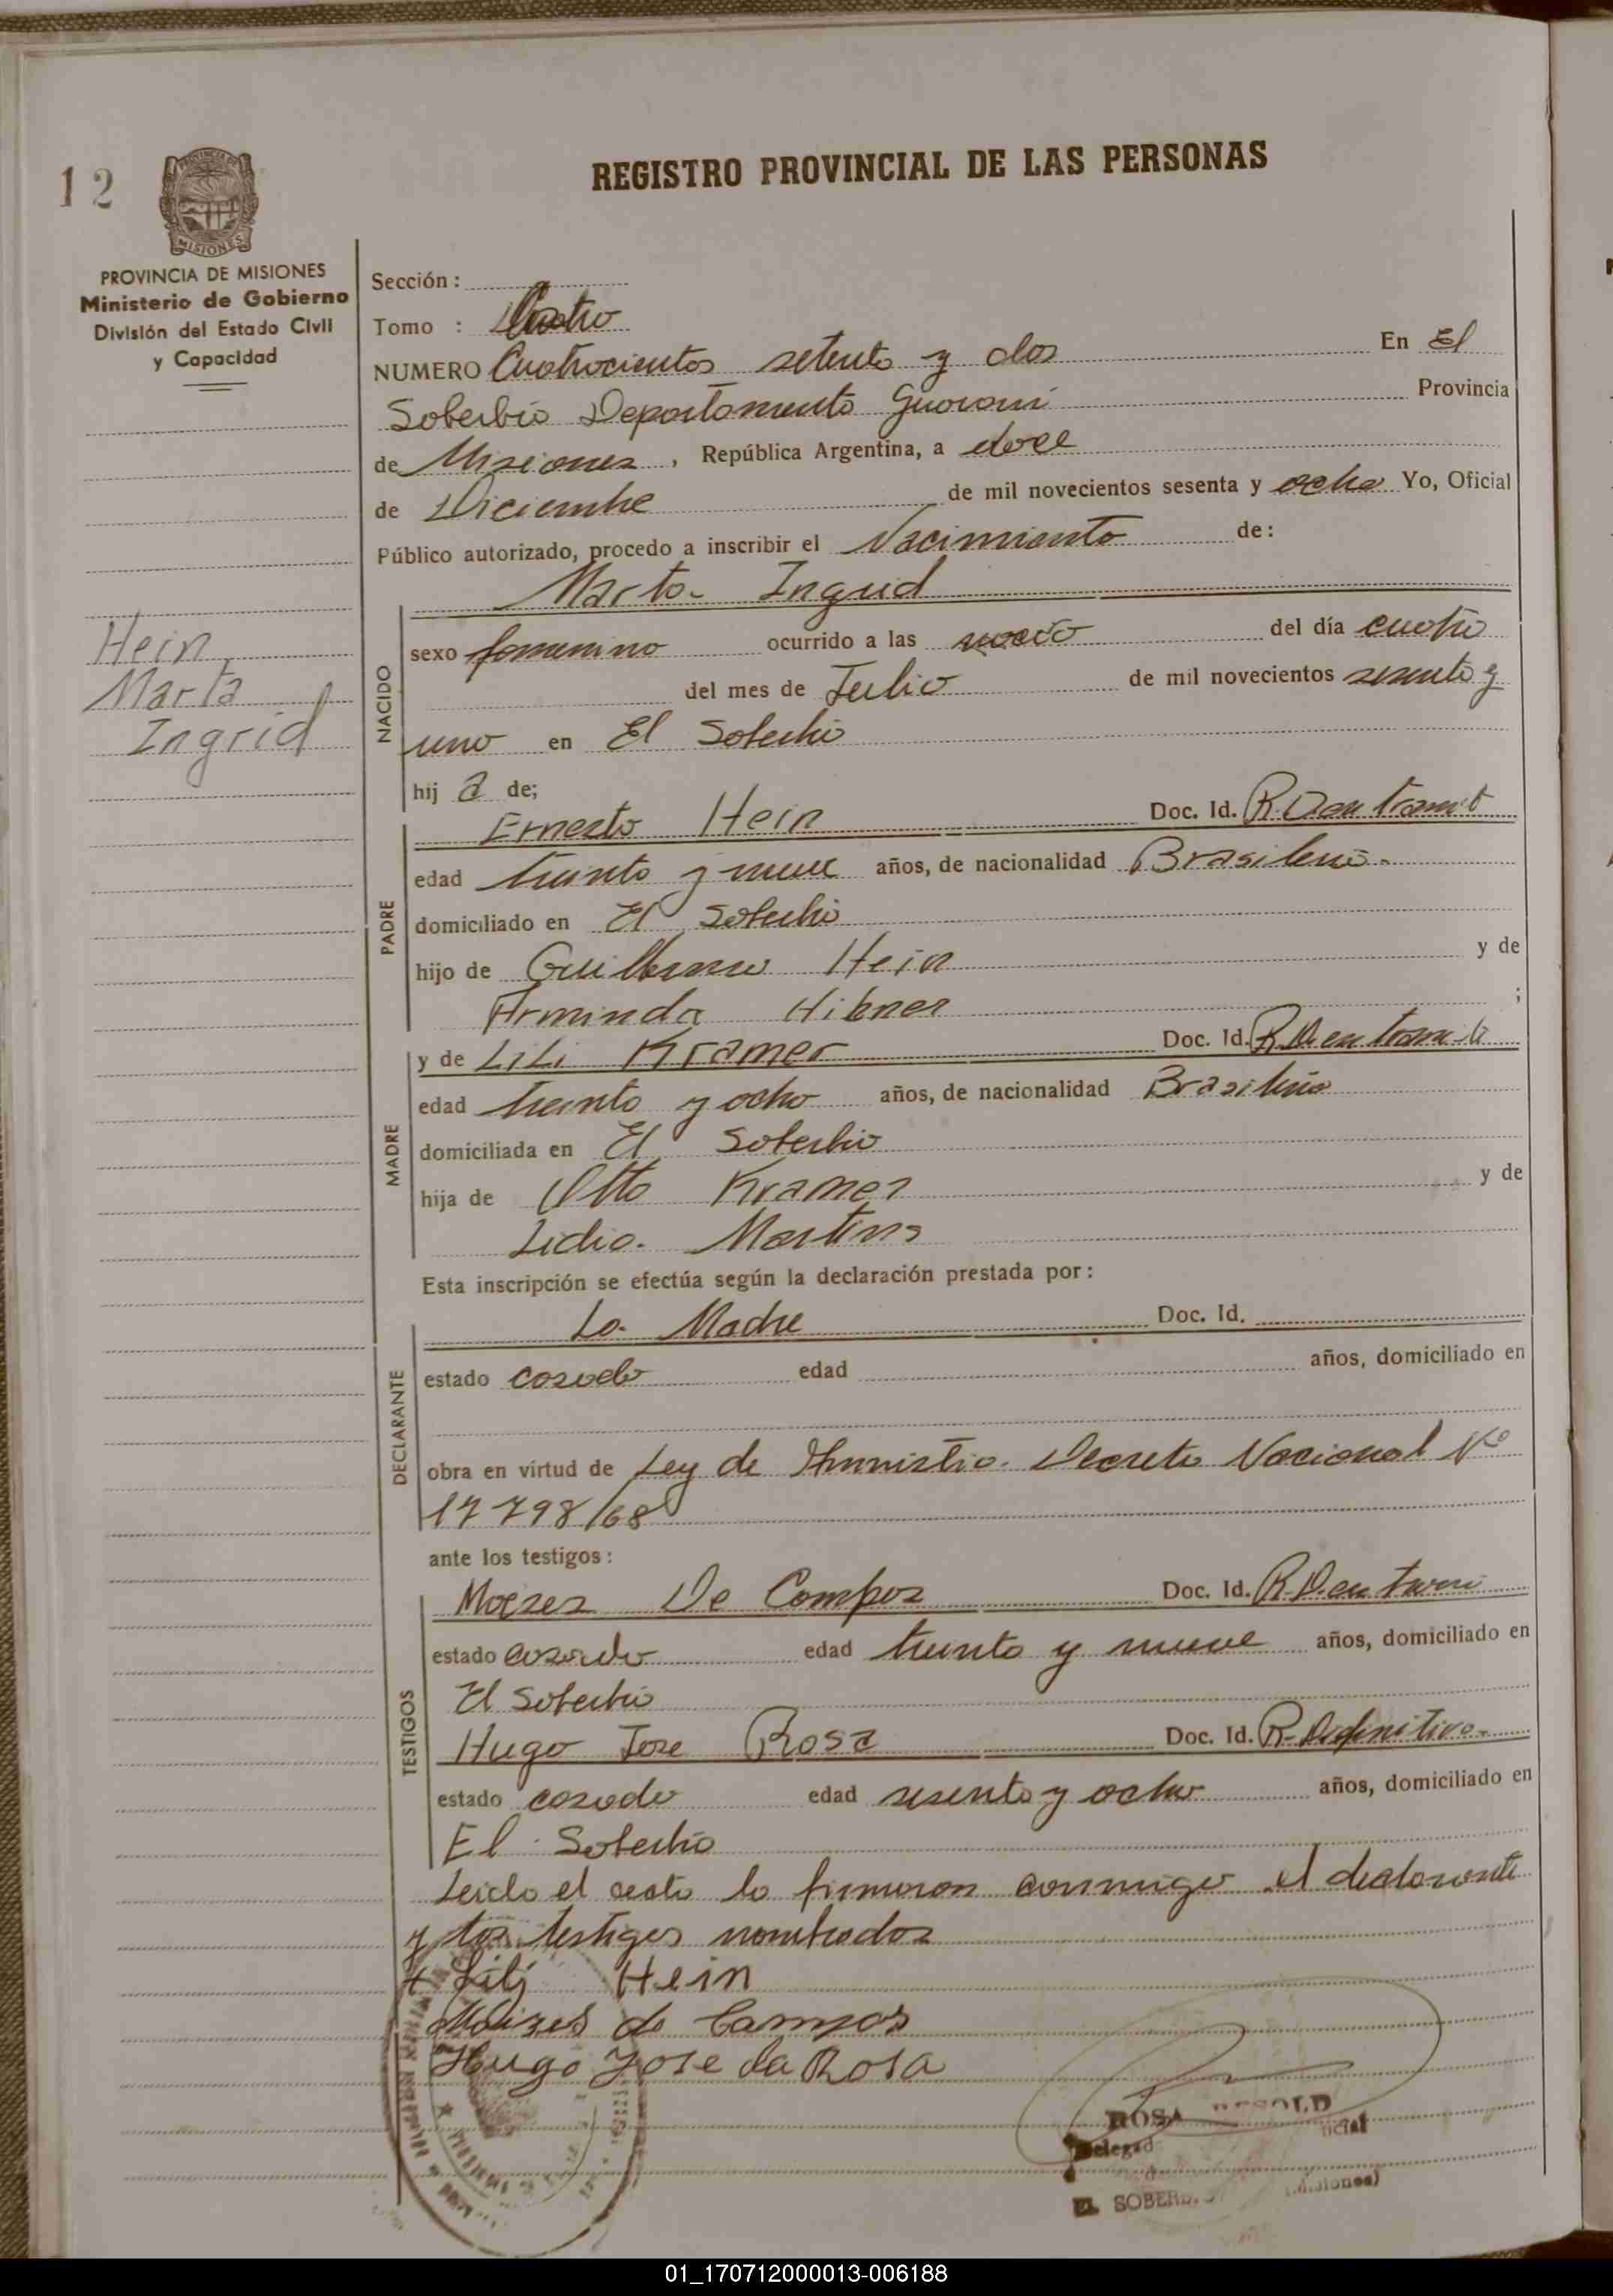 12
REGISTRO PROVINCIAL DE LAS PERSONAS
MISIONES
PROVINCIA DE MISIONES
Ministerio de Gobierno
División del Estado Civil
y Capacidad
Sección :
Tomo : Cuatro
NUMERO Cuatrocientos setenta y dos En El
Soberbio Departamento Guaraní Provincia
de Misiones, República Argentina, a doce
de Diciembre de mil novecientos sesenta y ocho Yo, Oficial
Público autorizado, procedo a inscribir el Nacimiento de:
Marta Ingrid
Hein
Marta
Ingrid
NACIDO
sexo femenino ocurrido a las del día cuatro
del mes de Julio de mil novecientos sesenta y
uno en El Soberbio
hij a de;
PADRE
Ernesto Hein Doc. Id. R. D en tramit
edad treinta y nueve años, de nacionalidad Brasilena
domiciliado en El Soberbio
hijo de Guillermo Hein y de
Arminda Hibner ;
MADRE
y de LiLi Kramer Doc. Id. R. D en tramit
edad treinta y ocho años, de nacionalidad Brasileña
domiciliada en El Soberbio
hija de Otto Kramer y de
Lidia Martins
Esta inscripción se efectúa según la declaración prestada por :
DECLARANTE
La Madre Doc. Id.
estado casada edad años, domiciliado en
obra en virtud de Ley de Amnistia Decreto Nacional Nº
17798/68
ante los testigos :
TESTIGOS
Moises De Campos Doc. Id. R. D. en
estado casado edad treinta y nueve años, domiciliado en
El Soberbio
Hugo Jose Rosa Doc. Id. R. Definitivo
estado casado edad sesenta y ocho años, domiciliado en
El Soberbio
Leido el acta la firmaron conmigo el declarante
y los testigos nombrados
Lili Hein
Moizes de Campos
Hugo Jose da Rosa
ROSA
EL SOBERB
01_170712000013-006188